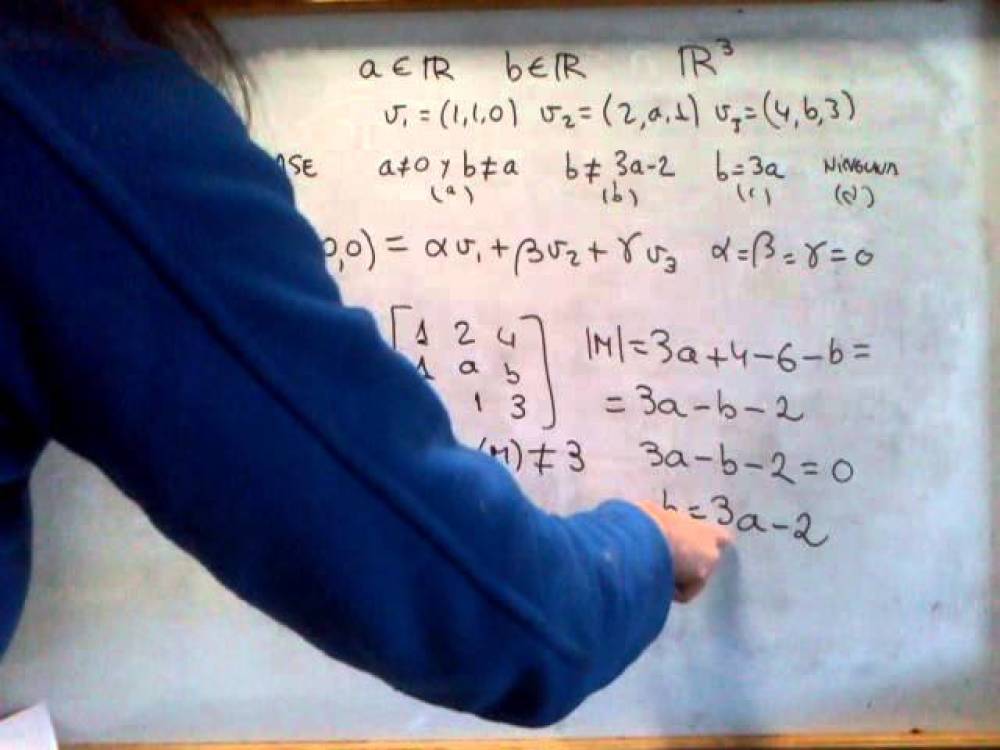 a ∈ ℝ b ∈ ℝ ℝ³
v₁ = (1,1,0) v₂ = (2,a,1) v₃ = (4,b,3)
ASE a ≠ 0 y b ≠ a b ≠ 3a-2 b = 3a NINGUNA
(a) (b) (c) (d)
0,0) = αv₁ + βv₂ + γv₃ α = β = γ = 0
1 2 4 |M| = 3a + 4 - 6 - b =
1 a b
1 3 = 3a - b - 2
(M) ≠ 3 3a - b - 2 = 0
b = 3a - 2